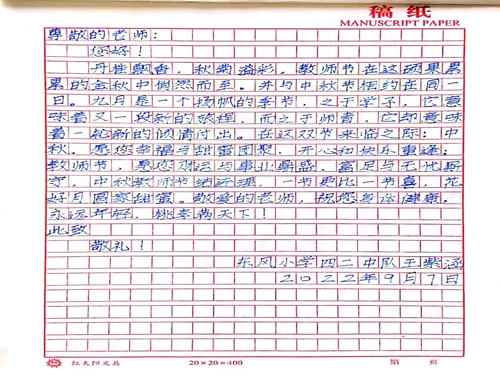 稿 纸
MANUSCRIPT PAPER
尊敬的老师:
您好!
丹桂飘香,秋菊溢彩,教师节在这硕果累
累的金秋中悄然而至。并与中秋节相约在同一
日。九月是一个扬帆的季节,之于学子,它意
味着又一段新的旅程,而之于师者,它却意味
着一轮新的倾情付出。在这双节来临之际:中
秋,愿您幸福与甜蜜团聚,开心和快乐重逢;
教师节,愿您财运与事业鼎盛,富足与无忧厮
守,中秋教师节结连理,一节更比一节喜,花
好月圆家甜蜜。敬爱的老师,祝您身体健康,
永远年轻,桃李满天下!
此致
敬礼!
东风小学四二中队王紫涵
2022年9月7日
红太阳文具 20×20=400 第 页